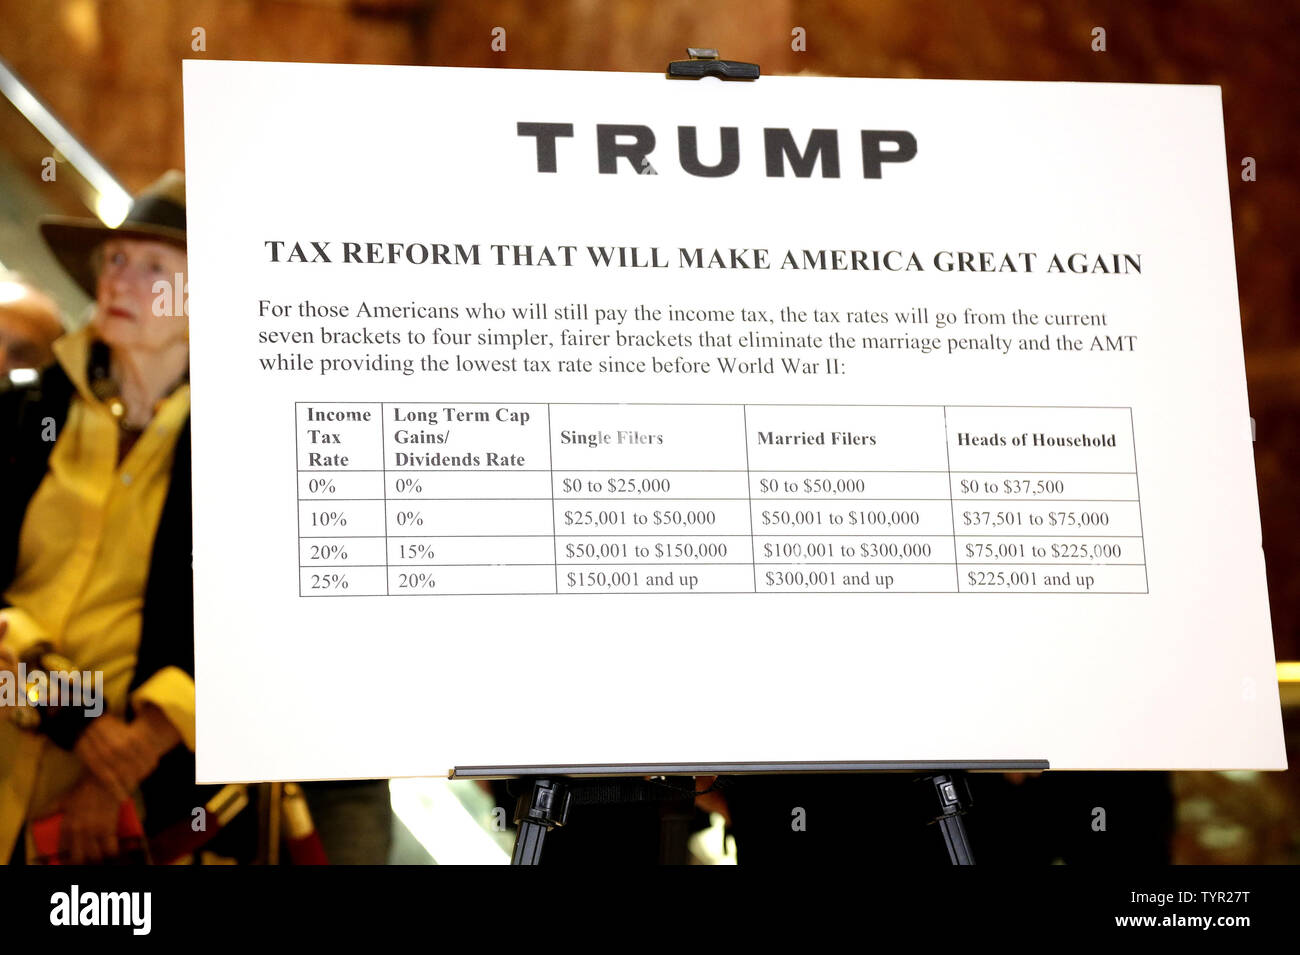 TRUMP
TAX REFORM THAT WILL MAKE AMERICA GREAT AGAIN
For those Americans who will still pay the income tax, the tax rates will go from the current
seven brackets to four simpler, fairer brackets that eliminate the marriage penalty and the AMT
while providing the lowest tax rate since before World War II:
Income Tax Rate Long Term Cap Gains/ Dividends Rate Single Filers Married Filers Heads of Household
0% 0% $0 to $25,000 $0 to $50,000 $0 to $37,500
10% 0% $25,001 to $50,000 $50,001 to $100,000 $37,501 to $75,000
20% 15% $50,001 to $150,000 $100,001 to $300,000 $75,001 to $225,000
25% 20% $150,001 and up $300,001 and up $225,001 and up
a alamy
Image ID: TYR27T
www.alamy.com